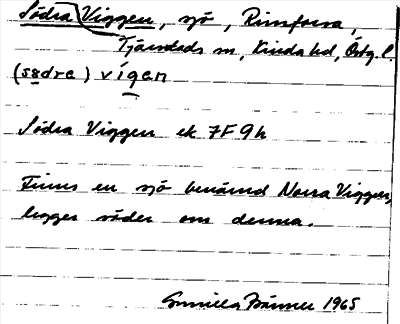 Södra Viggen, sjö, Rimforsa,
Tjärstads sn, Kinda hd, Östg. l.
(sødre) vígen
Södra Viggen ek 7F 9h
Finns en sjö benämnd Norra Viggen,
ligger söder om denna.
Gunilla 1965